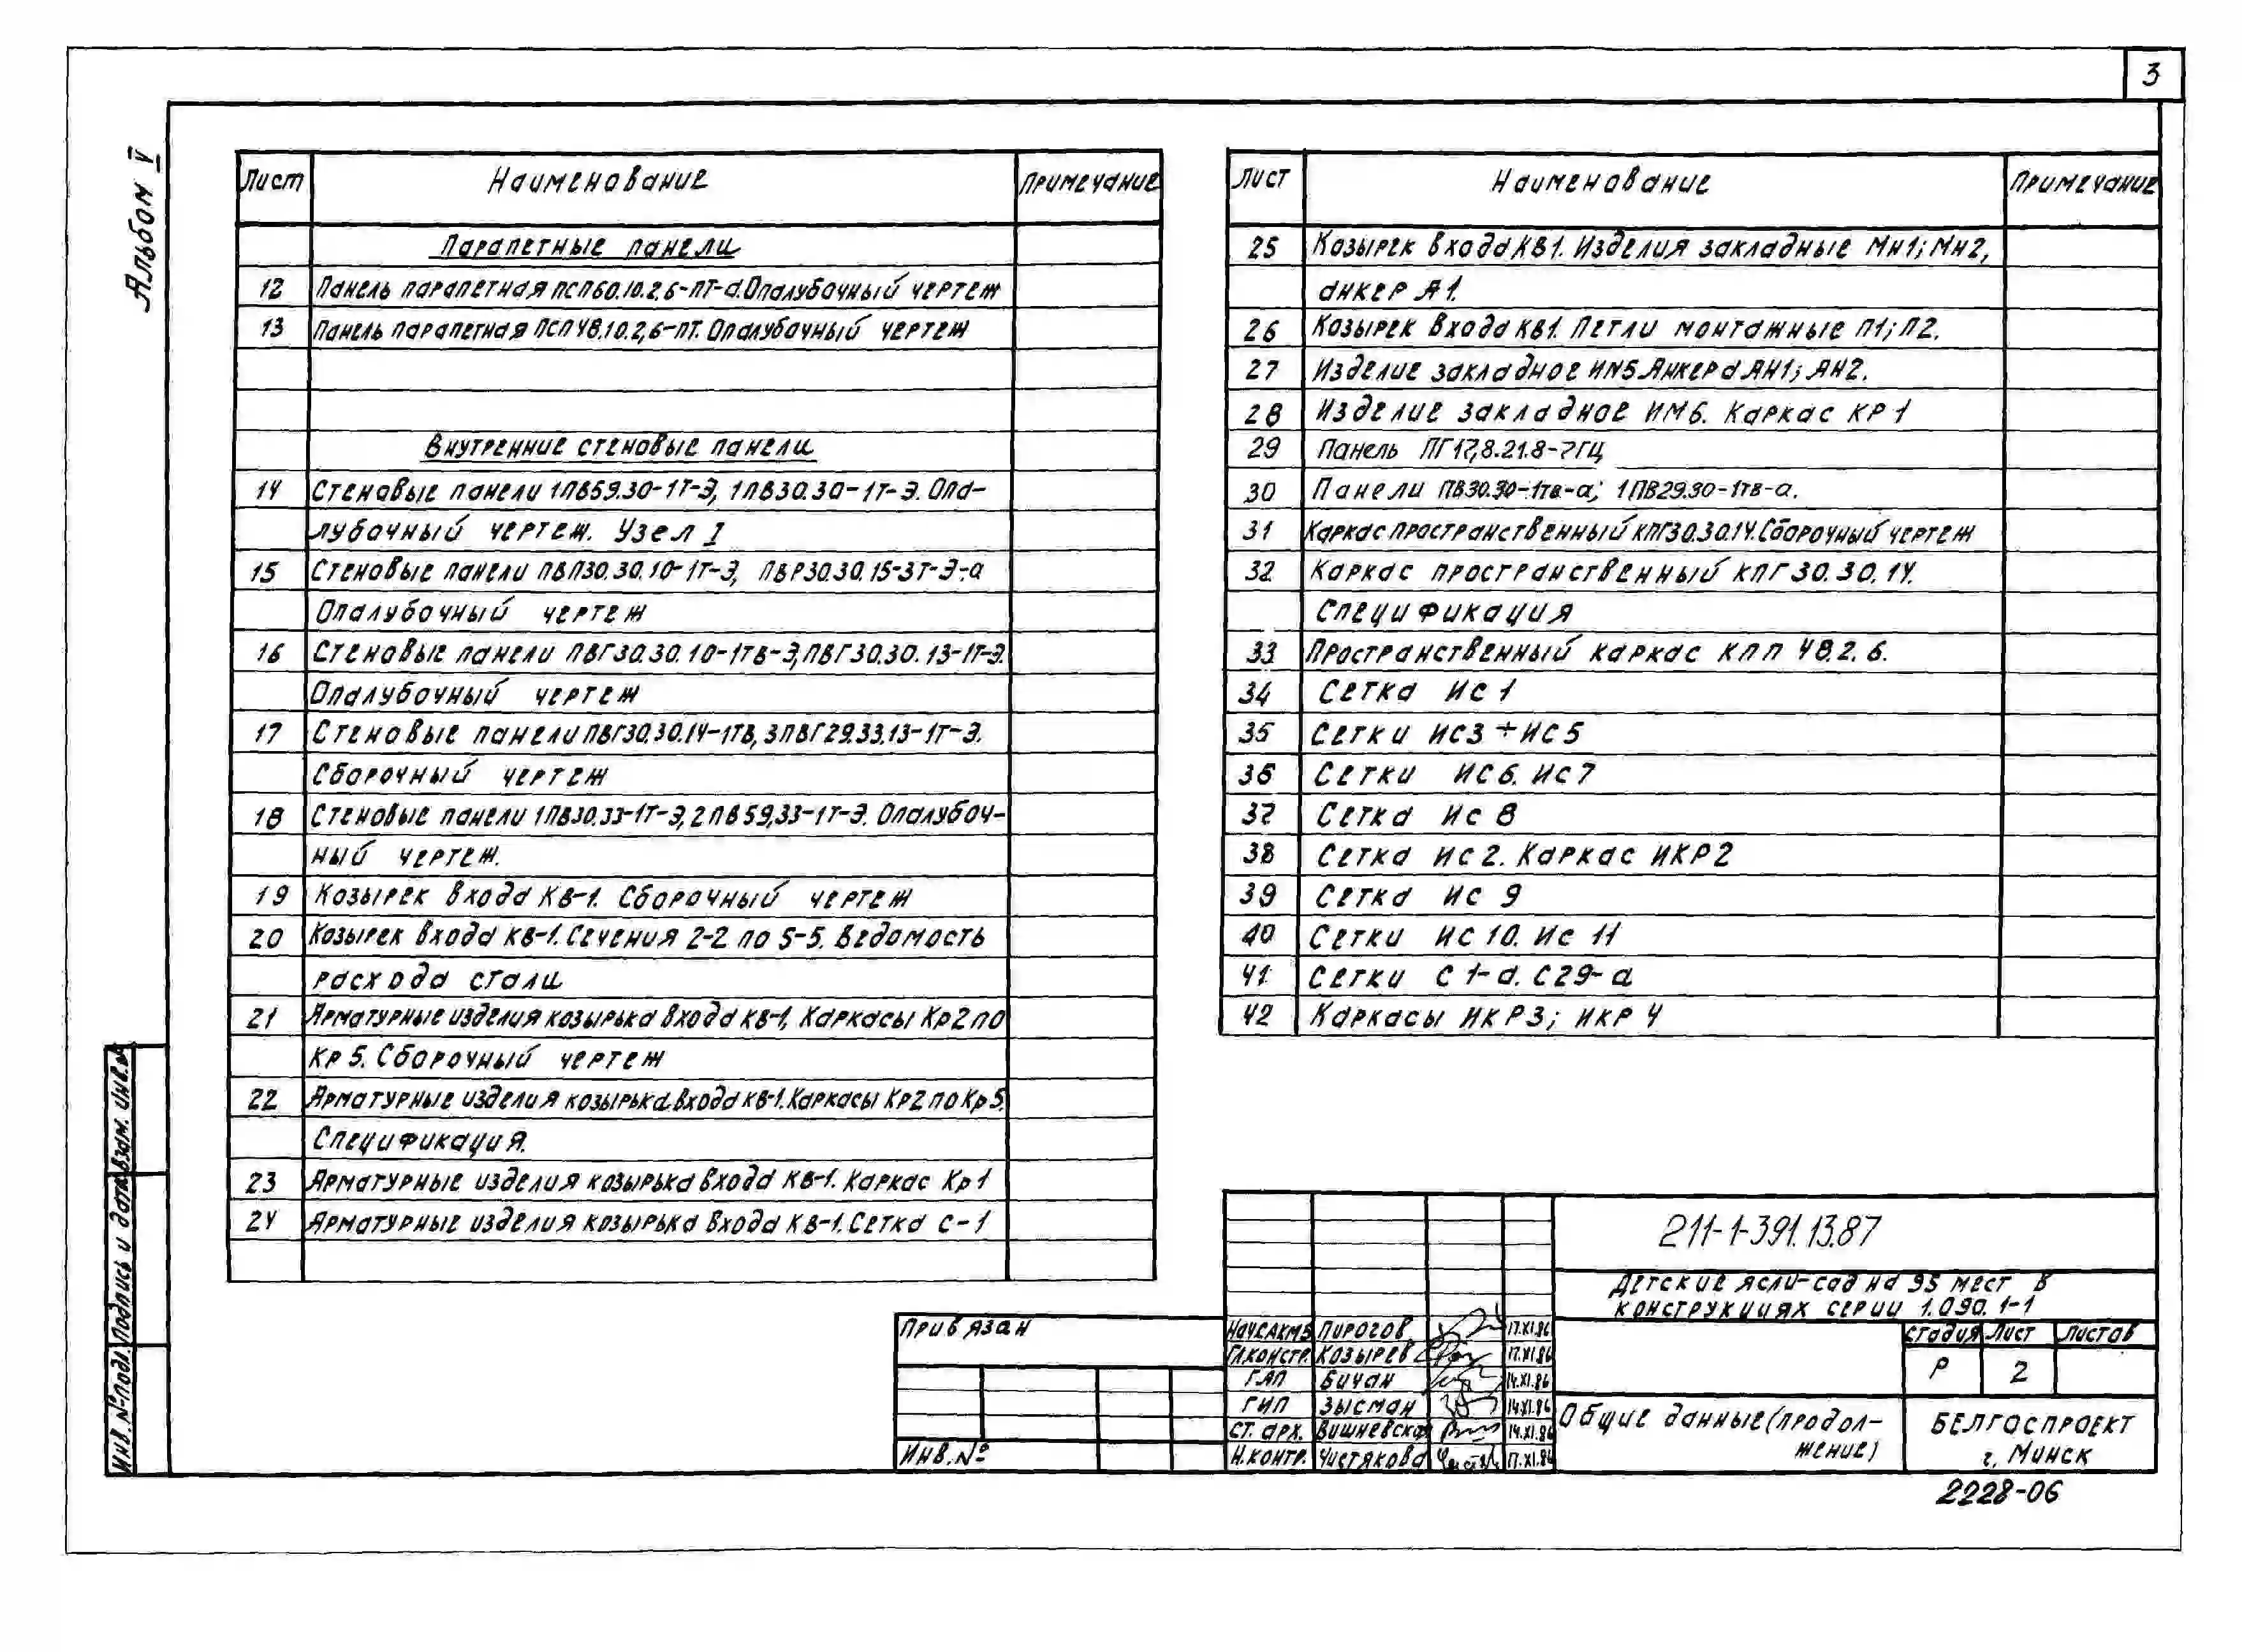 3
Альбом V
Лист Наименование Примечание
Парапетные панели
12 Панель парапетная ПСП60.10.2.6-ПТ-а. Опалубочный чертеж
13 Панель парапетная ПСП48.10.2,6-ПТ. Опалубочный чертеж
Внутренние стеновые панели
14 Стеновые панели 1ПВ59.30-1Т-Э, 1ПВ30.30-1Т-Э. Опа-
лубочный чертеж. Узел I
15 Стеновые панели ПВП30.30.10-1Т-Э, ПВР30.30.15-3Т-Э-а
Опалубочный чертеж
16 Стеновые панели ПВГ30.30.10-1ТВ-Э, ПВГ30.30.13-1Т-Э.
Опалубочный чертеж
17 Стеновые панели ПВГ30.30.14-1ТВ, 3ПВГ29.33.13-1Т-Э.
Сборочный чертеж
18 Стеновые панели 1ПВ30.33-1Т-Э, 2ПВ59,33-1Т-Э. Опалубоч-
ный чертеж.
19 Козырек входа КВ-1. Сборочный чертеж
20 Козырек входа КВ-1. Сечения 2-2 по 5-5. Ведомость
расхода стали
21 Арматурные изделия козырька входа КВ-1, Каркасы Кр2 по
Кр5. Сборочный чертеж
22 Арматурные изделия козырька входа КВ-1. Каркасы Кр2 по Кр5.
Спецификация.
23 Арматурные изделия козырька входа КВ-1. Каркас Кр1
24 Арматурные изделия козырька входа КВ-1. Сетка С-1
Лист Наименование Примечание
25 Козырек входа КВ1. Изделия закладные Мн1; Мн2,
анкер А1.
26 Козырек входа КВ1. Петли монтажные П1; П2.
27 Изделие закладное ИМ5. Анкера АН1; АН2.
28 Изделие закладное ИМ6. Каркас КР1
29 Панель ПГ17,8.21.8-2ГЦ
30 Панели ПВ30.30-1тв-а; 1ПВ29.30-1тв-а.
31 Каркас пространственный КПГ30.30.14. Сборочный чертеж
32 Каркас пространственный КПГ30.30.14.
Спецификация
33 Пространственный каркас КПП 48.2.6.
34 Сетка ИС1
35 Сетки ИС3÷ИС5
36 Сетки ИС6. ИС7
37 Сетка ИС 8
38 Сетка ИС2. Каркас ИКР2
39 Сетка ИС 9
40 Сетки ИС 10. ИС 11
41 Сетки С1-а. С29-а
42 Каркасы ИКР3; ИКР4
Инв. № подл. Подпись и дата Взам. инв. №
Привязан
Инв. №
Нач.САКМ5 Пирогов 17.XI.86
Гл.констр. Козырев 17.XI.86
ГАП Бичан 14.XI.86
ГИП Зысман 14.XI.86
Ст. арх. Вишневская 14.XI.86
Н.контр. Чистякова 17.XI.86
211-1-391.13.87
Детские ясли-сад на 95 мест в
конструкциях серии 1.090.1-1
Стадия Лист Листов
Р 2
Общие данные (продол-
жение)
БЕЛГОСПРОЕКТ
г. Минск
2228-06